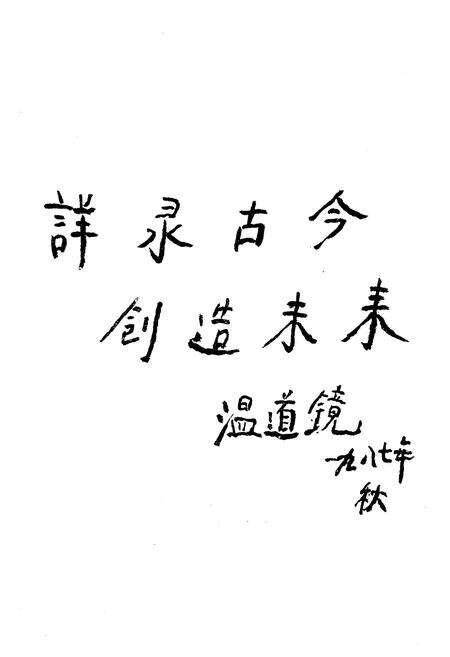 詳录古今
创造未来
温道镜
一九八七年
秋